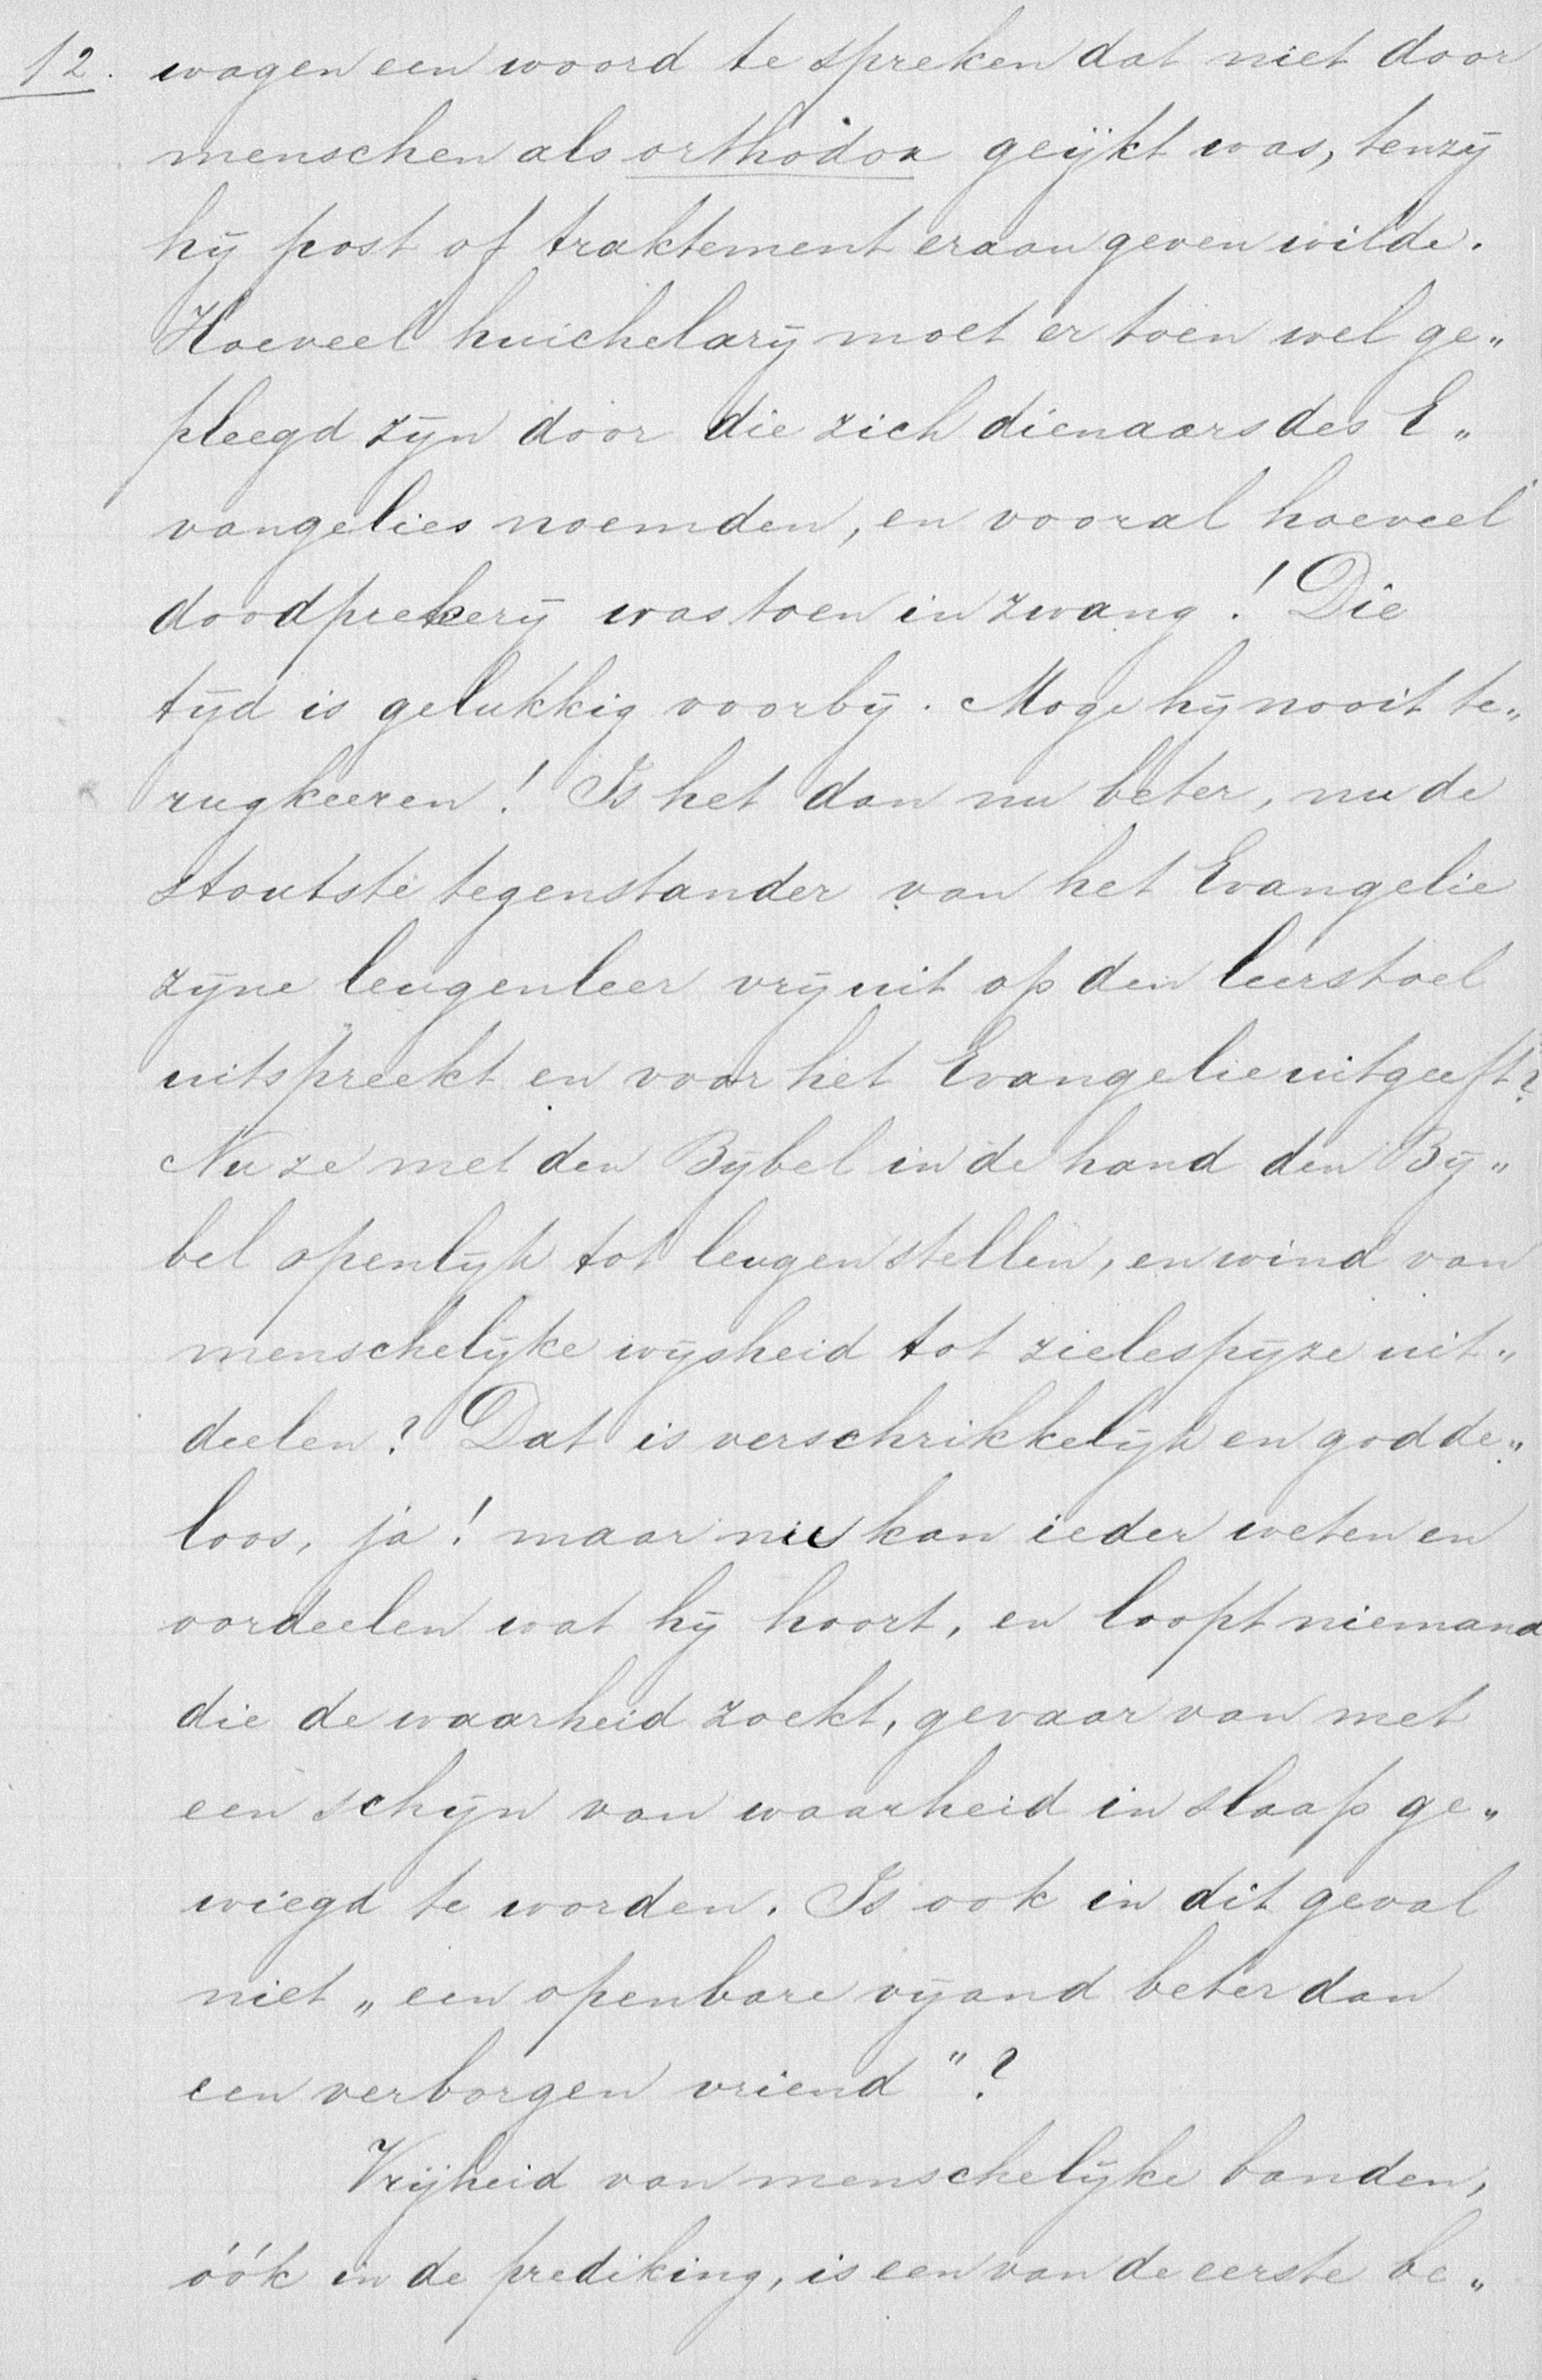 12. wagen een woord te spreken dat niet door
menschen als orthodox geijkt was, tenzij
hij post of traktement eraan geven wilde.
Hoeveel huichelarij moet er toen wel ge„
pleegd zijn door die zich dienaars des E„
vangelies noemden, en vooral hoeveel
doodprekerij was toen in zwang! Die
tijd is gelukkig voorbij. Moge hij nooit te„
rugkeeren! Is het dan nu beter, nu de
stoutste tegenstander van het Evangelie
zijne leugenleer vrijuit op den leerstoel
uitspreekt en voor het Evangelie uitgeeft?
Nu ze met den Bijbel in de hand den Bij„
bel openlijk tot leugen stellen, en wind van
menschelijke wijsheid tot zielespijze uit„
deelen? Dat is verschrikkelijk en godde„
loos, ja! maar nu kan ieder weten en
oordeelen wat hij hoort, en loopt niemand
die de waarheid zoekt, gevaar van met
een schijn van waarheid in slaap ge„
wiegd te worden. Is ook in dit geval
niet „een openbare vijand beter dan
een verborgen vriend"?
Vrijheid van menschelijke banden,
óók in de prediking, is een van de eerste be„